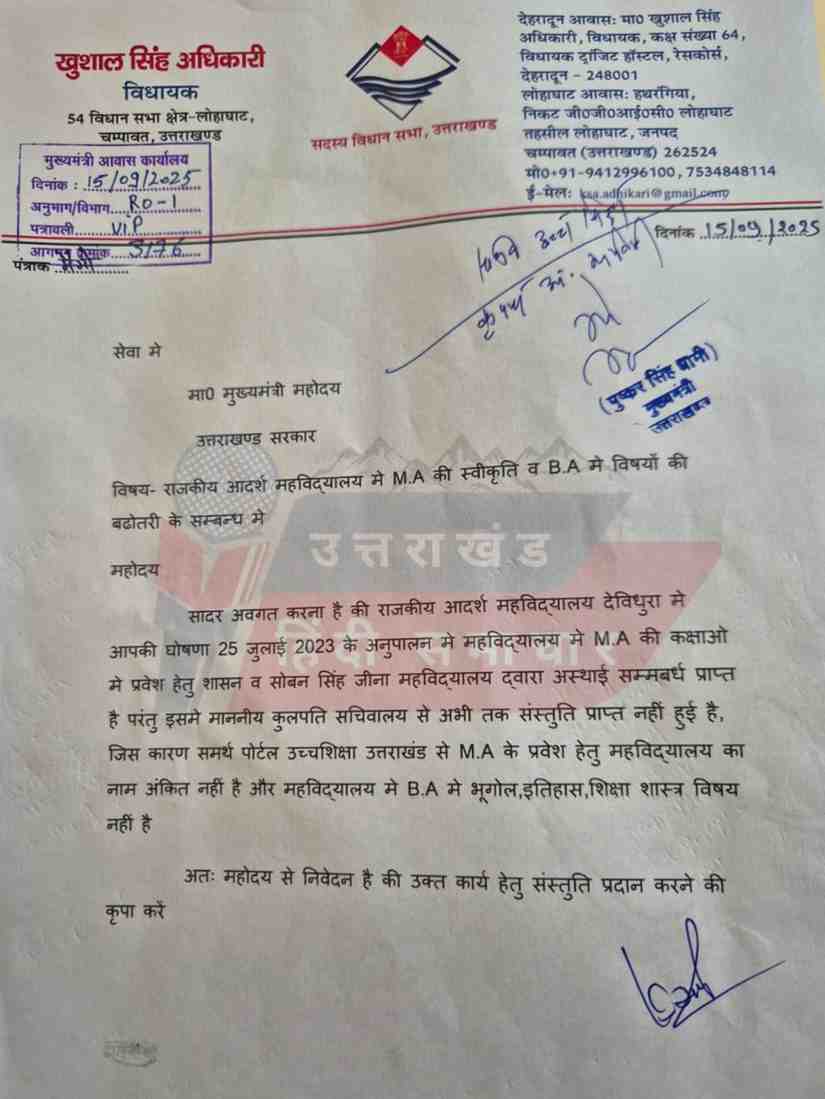 खुशाल सिंह अधिकारी
विधायक
54 विधान सभा क्षेत्र-लोहाघाट,
चम्पावत, उत्तराखण्ड
सदस्य विधान सभा, उत्तराखण्ड
देहरादून आवास: मा0 खुशाल सिंह
अधिकारी, विधायक, कक्ष संख्या 64,
विधायक ट्रांजिट हॉस्टल, रेसकोर्स,
देहरादून - 248001
लोहाघाट आवास: हथरंगिया,
निकट जी0जी0आई0सी0 लोहाघाट
तहसील लोहाघाट, जनपद
चम्पावत (उत्तराखण्ड) 262524
मो0+91-9412996100, 7534848114
ई-मेल: ksa.adhikari@gmail.com
मुख्यमंत्री आवास कार्यालय
दिनांक : 15/09/2025
अनुभाग/विभाग RO-1
पत्रावली VIP
आगमन क्रमांक 5176
पत्रांक
दिनांक 15/09/2025
(पुष्कर सिंह धामी)
मुख्यमंत्री
उत्तराखण्ड
सेवा मे
मा0 मुख्यमंत्री महोदय
उत्तराखण्ड सरकार
विषय- राजकीय आदर्श महविद्यालय मे M.A की स्वीकृति व B.A मे विषयों की
बढोतरी के सम्बन्ध मे
महोदय
सादर अवगत करना है की राजकीय आदर्श महविद्यालय देविधुरा मे
आपकी घोषणा 25 जुलाई 2023 के अनुपालन मे महविद्यालय मे M.A की कक्षाओ
मे प्रवेश हेतु शासन व सोबन सिंह जीना महविद्यालय द्वारा अस्थाई सम्मबर्ध प्राप्त
है परंतु इसमे माननीय कुलपति सचिवालय से अभी तक संस्तुति प्राप्त नहीं हुई है,
जिस कारण समर्थ पोर्टल उच्चशिक्षा उत्तराखंड से M.A के प्रवेश हेतु महविद्यालय का
नाम अंकित नहीं है और महविद्यालय मे B.A मे भूगोल,इतिहास,शिक्षा शास्त्र विषय
नहीं है
अतः महोदय से निवेदन है की उक्त कार्य हेतु संस्तुति प्रदान करने की
कृपा करें
उत्तराखंड
हिंदी समाचार